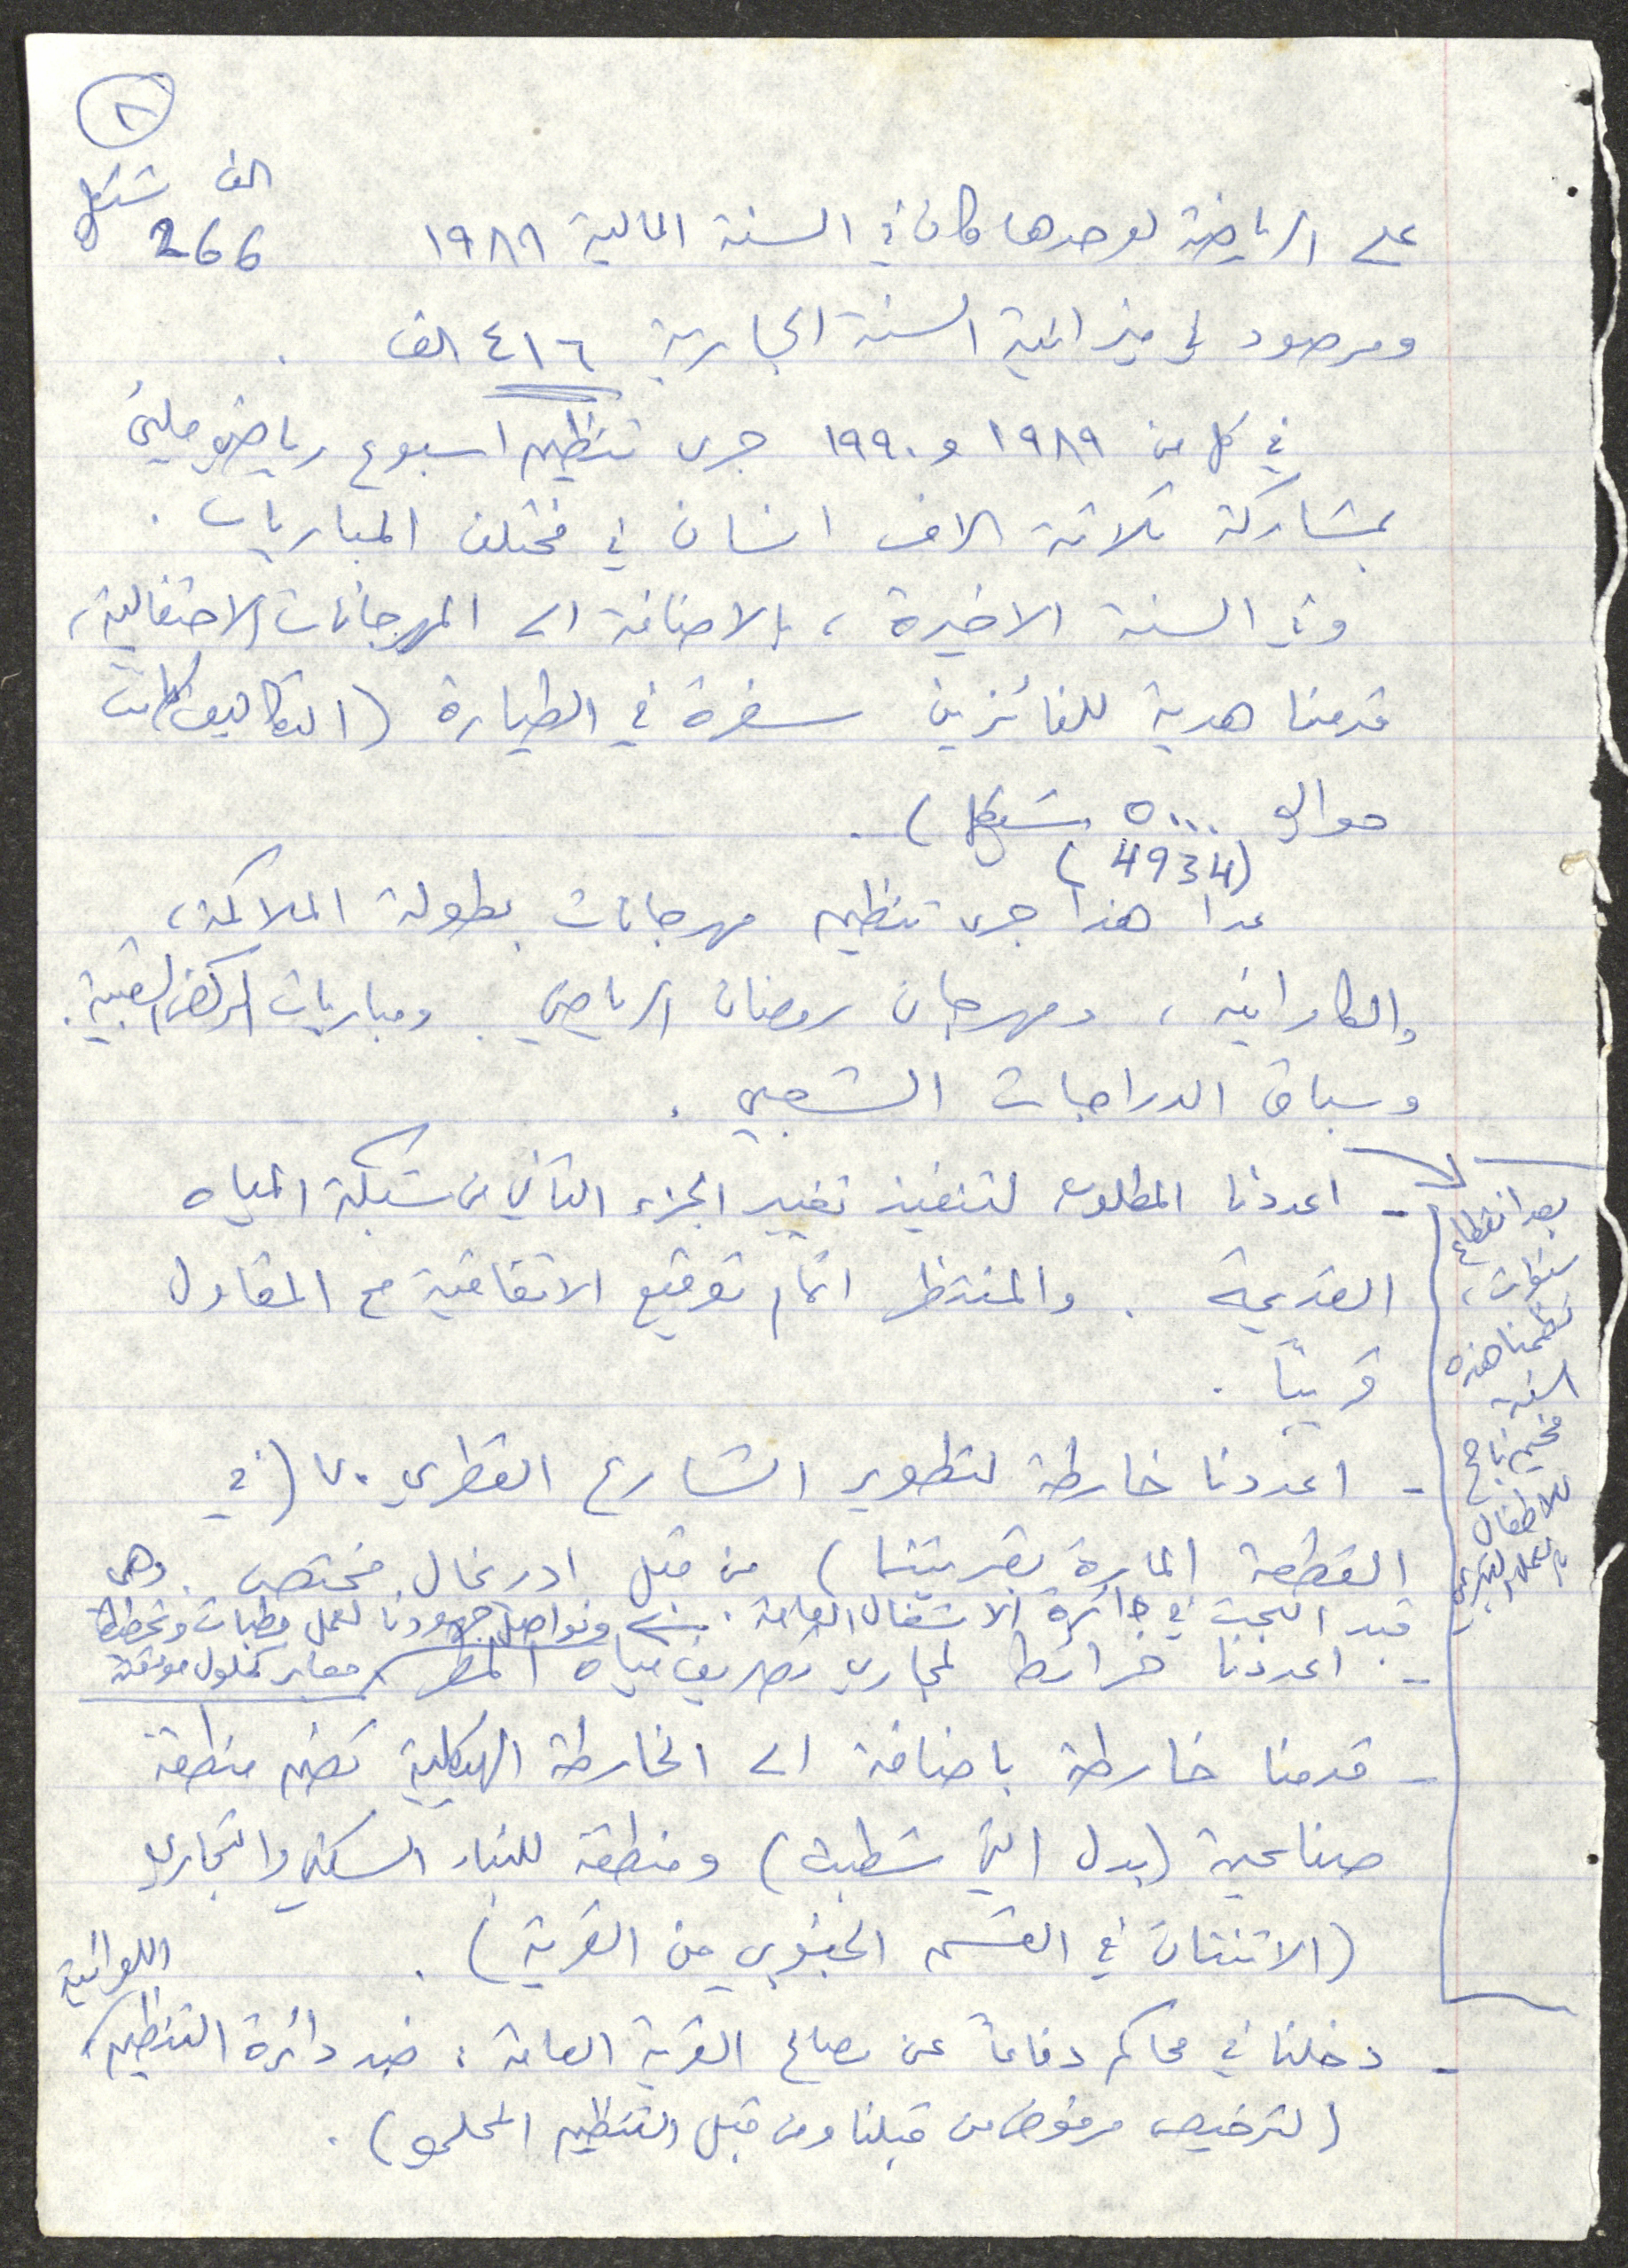 ٨
على الرياضة لوحدها كان في السنة المالية ١٩٨٩ 266 الف شيكل
ومرصود في ميزانية السنة الجارية ٤١٦ الف .
في كل من ١٩٨٩ و ١٩٩٠ جرى تنظيم اسبوع رياضي
بمشاركة ثلاثة الاف انسان في مختلف المباريات .
وفي السنة الاخيرة ، بالاضافة الى المهرجانات الاحتفالية ،
قدمنا هدية للفائزين سفرة في الطيارة (التكاليف كانت
حوالي ٥٠٠٠ شيكل) .
(4934)
عدا هذا جرى تنظيم مهرجانات بطولة الملاكمة ،
والكاراتيه ، ومهرجان رمضان الرياضي . ومباريات الركض الشعبية .
وسباق الدراجات الشعبي .
- اعددنا المطلوب لتنفيذ تغيير الجزء الثاني من شبكة المياه
القديمة . والمنتظر اتمام توقيع الاتفاقية مع المقاول
قريباً .
- اعددنا خارطة لتطوير الشارع القطري ٧٠ (في
القطعة المارة بقريتنا) من قبل ادريخال مختص . وهي
قيد البحث في دائرة الاشغال العامة . ونواصل جهودنا لعمل مطبات وتخطيط
معابر كحلول موقتة
- اعددنا خرائط لمجاري تصريف مياه المطر
- قدمنا خارطة باضافة الى الخارطة الهيكلية تضم منطقة
صناعية (بدل التي شطبت) ومنطقة للبناء السكني والتجاري
(الاثنتان في القسم الجنوبي من القرية) .
- دخلنا في محاكم دفاعاً عن مصالح القرية العامة : ضد دائرة التنظيم اللوائية
(لترخيص مرفوض من قبلنا ومن قبل التنظيم المحلي) .
بعد انقطاع
سنوات ،
نظمنا هذه
السنة
مخيم ناجح
للاطفال